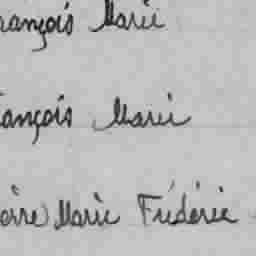 rançois Marie
ançois Marie
erre Marie Frédéric